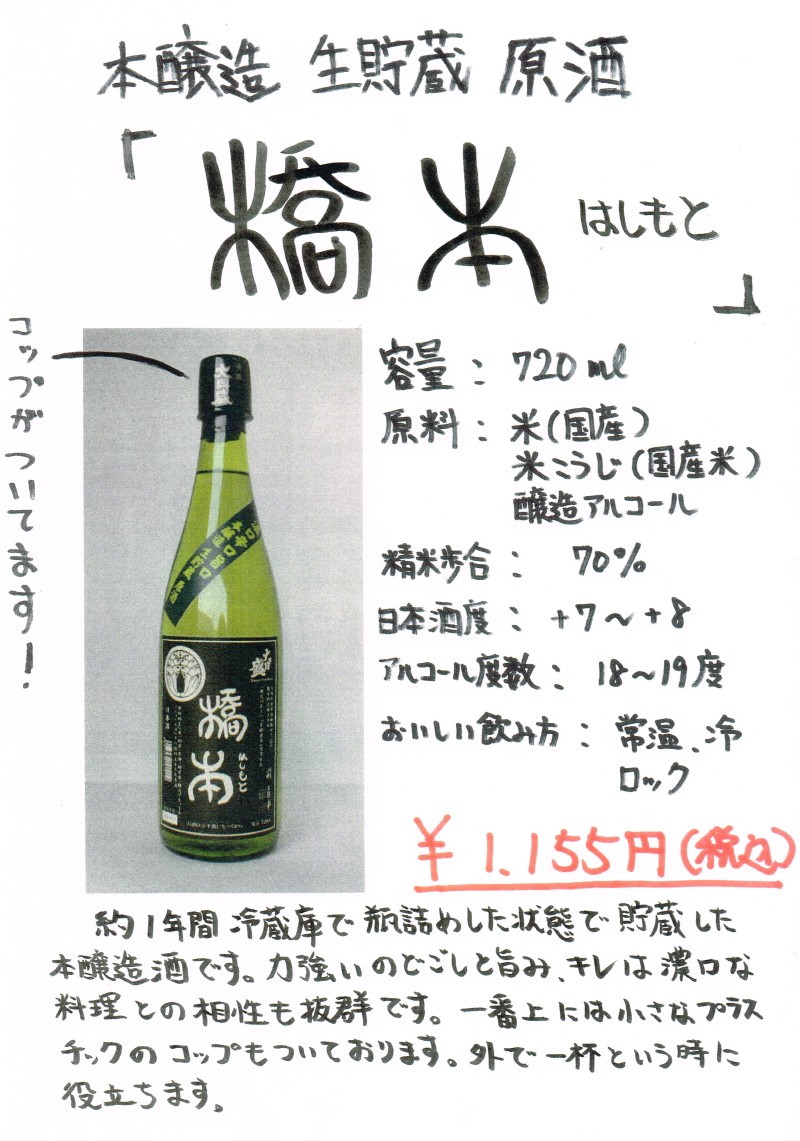 本醸造 生貯蔵 原酒
「橋本 はしもと」
コップがついてます!
容量: 720ml
原料: 米(国産)
米こうじ(国産米)
醸造アルコール
精米歩合: 70%
日本酒度: +7~+8
アルコール度数: 18~19度
おいしい飲み方: 常温、冷
ロック
本醸造 生貯蔵 原酒
橋本
はしもと
日本酒
¥1.155円(税込)
約1年間 冷蔵庫で瓶詰めした状態で貯蔵した
本醸造酒です。力強いのどごしと旨み、キレは濃口な
料理との相性も抜群です。一番上には小さなプラス
チックのコップもついております。外で一杯という時に
役立ちます。